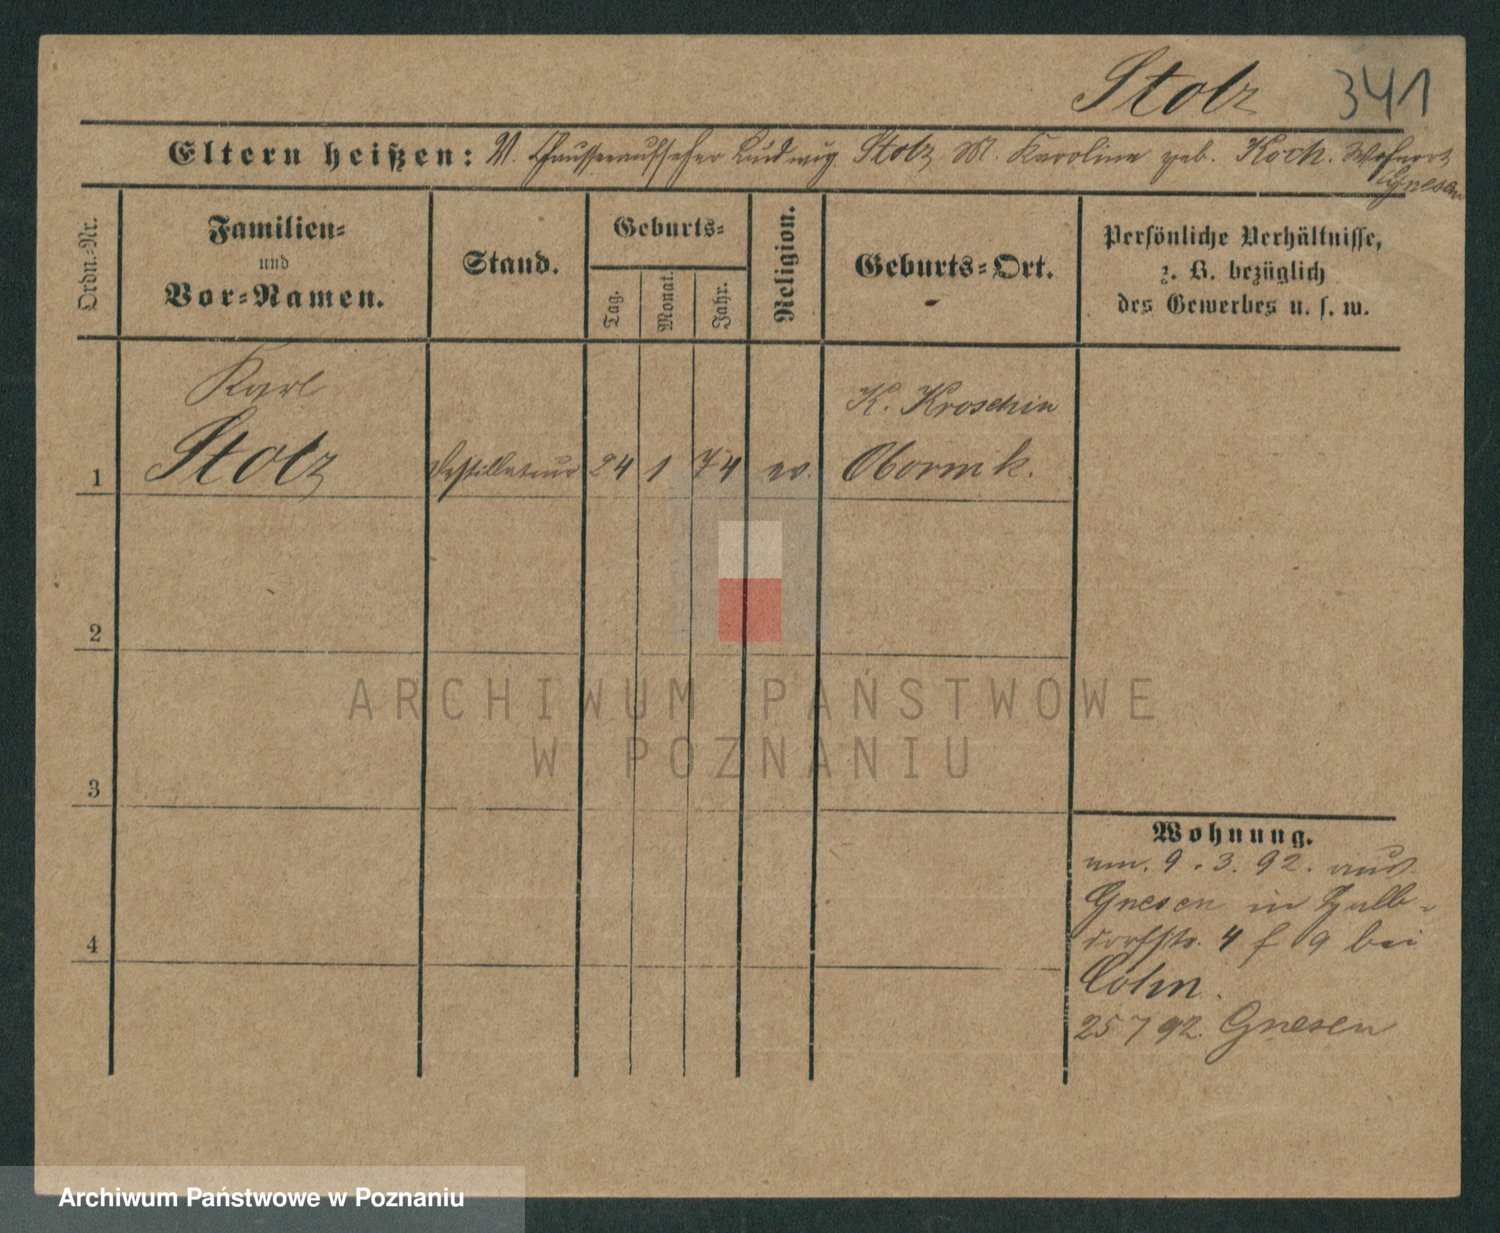 Stolz 341
Eltern heißen: V. Chausseeaufseher Ludwig Stolz M. Karoline geb. Koch. Wohnort
Gnesen
Ordn.-Nr.
Familien-
und
Vor-Namen.
Stand.
Geburts-
Tag.
Monat.
Jahr.
Religion.
Geburts-Ort.
Persönliche Verhältnisse,
z. B. bezüglich
des Gewerbes u. s. w.
Karl
K. Kroschin
1 Stolz Destillateur 24 1 74 ev. Obornik.
2
3
4
Wohnung.
um. 9.3.92. aus
Gnesen in
dorfstr. 4 f 19 bei
Cohn.
25 7 92. Gnesen
ARCHIWUM PAŃSTWOWE
W POZNANIU
Archiwum Państwowe w Poznaniu